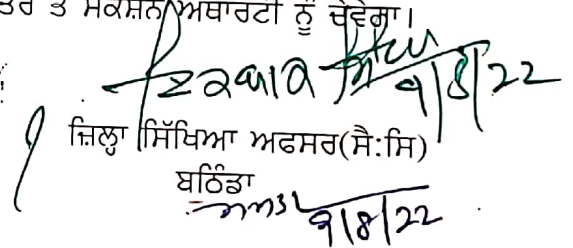 ਤਰ ਤੇ ਸੈਕਸ਼ਨ/ਅਥਾਰਟੀ ਨੂੰ ਦੇਵੇਗਾ।
9/8/22
ਜ਼ਿਲ੍ਹਾ ਸਿੱਖਿਆ ਅਫਸਰ(ਸੈ:ਸਿ)
ਬਠਿੰਡਾ
9/8/22